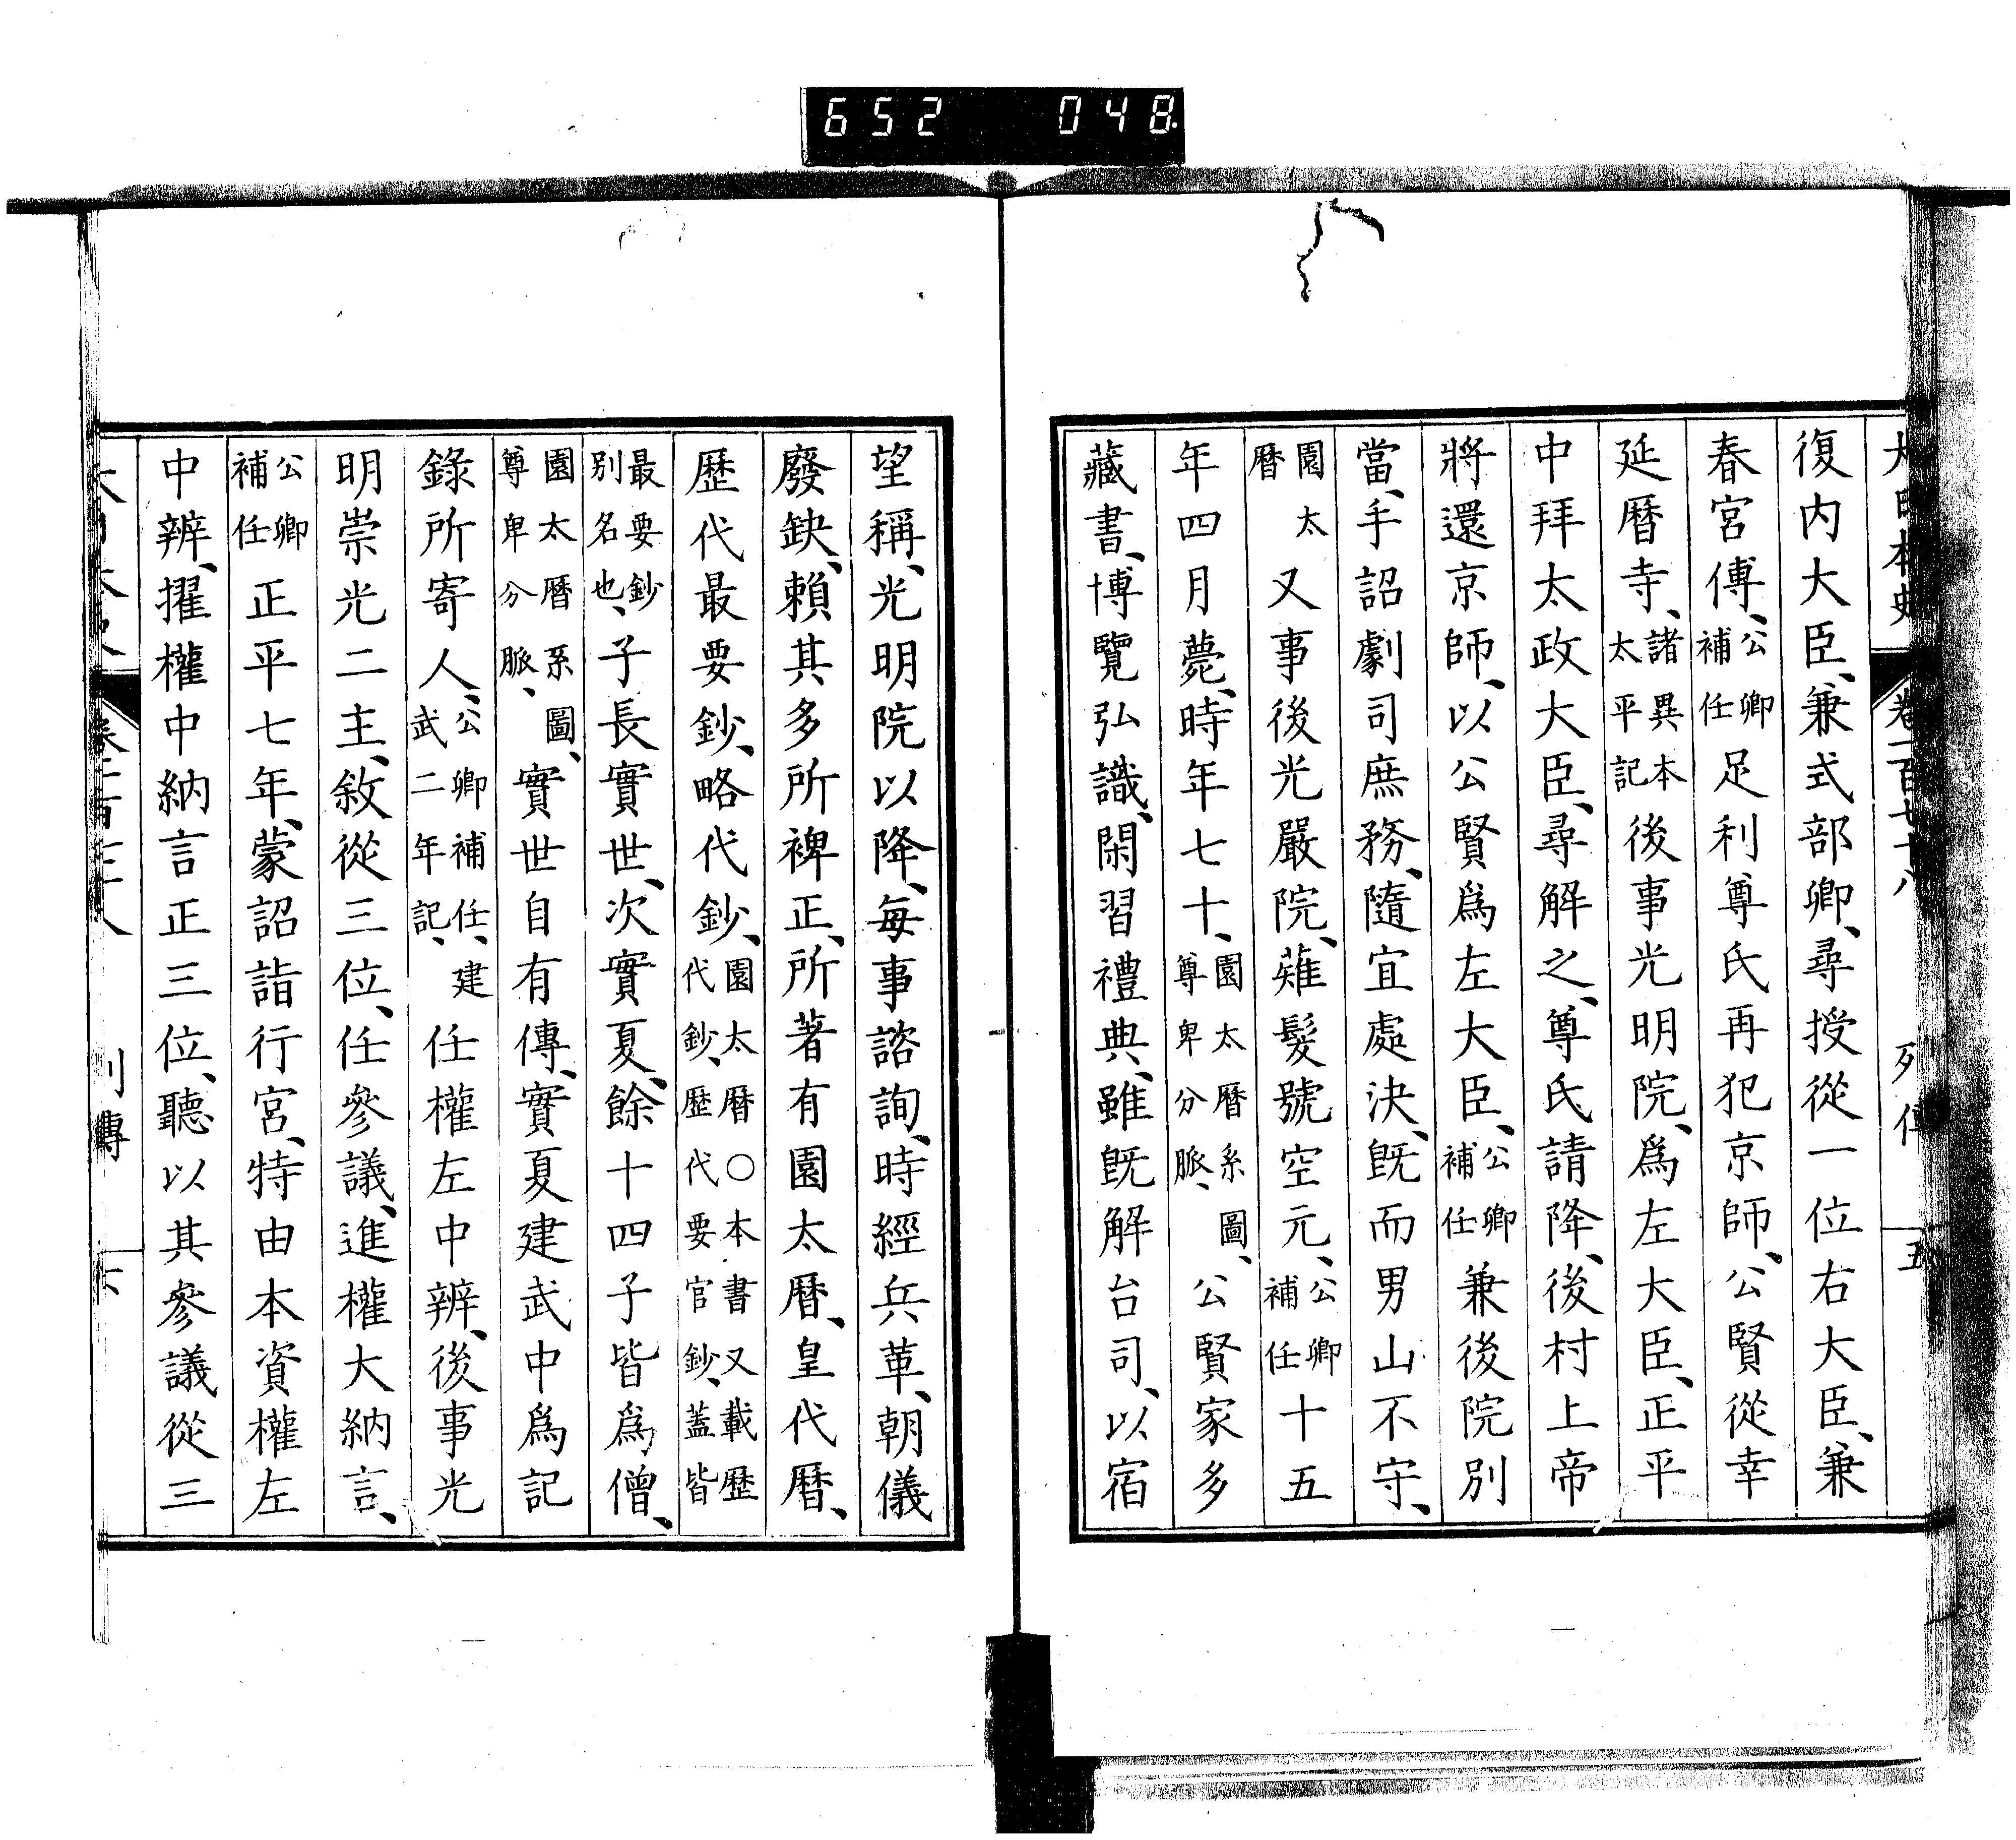 652 048
大日本史 卷一百七十八 列傳 五
復内大臣、兼式部卿、尋授從一位右大臣、兼
春宮傅、公卿補任足利尊氏再犯京師、公賢從幸
延曆寺、諸異本太平記後事光明院、爲左大臣、正平
中拜太政大臣、尋解之、尊氏請降、後村上帝
將還京師、以公賢爲左大臣、公卿補任兼後院別
當、手詔劇司庶務、隨宜處決、既而男山不守、
園太曆又事後光嚴院、薙髮號空元、公卿補任十五
年四月薨、時年七十、園太曆系圖、尊卑分脈、公賢家多
藏書、博覽弘識、閑習禮典、雖既解台司、以宿
望稱、光明院以降、每事諮詢、時經兵革、朝儀
廢缺、賴其多所裨正、所著有園太曆、皇代曆、
歷代最要鈔、略代鈔、園太曆○本書又載歷代鈔、歷代要官鈔、蓋皆
最要鈔別名也、子長實世、次實夏、餘十四子皆爲僧、
園太曆系圖、尊卑分脈、實世自有傳、實夏建武中爲記
錄所寄人、公卿補任、建武二年記、任權左中辨、後事光
明崇光二主、敘從三位、任參議、進權大納言、
公卿補任正平七年、蒙詔詣行宮、特由本資權左
中辨、擢權中納言正三位、聽以其參議從三
列傳